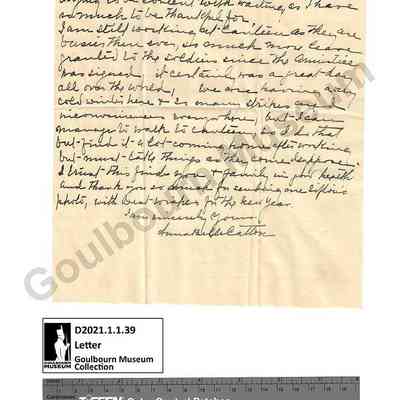 to be content with waiting, as I have
so much to be thankful for.
I am still working at Canteen as they are
busier than ever, so much more leave
granted to the soldiers since the Armistice
was signed. it certainly was a great day
all over the world, We are having a very
cold winter here & so many strikes are
everywhere, but I can
manage to walk to canteen I do that
but find it a lot coming home after working,
but must take things as they come I suppose.
I trust this finds you & family in good health
and thank you so much for sending me
photo, with best wishes for the New Year.
I am sincerely yours,
Goulbourn Museum
D2021.1.1.39
Letter
Goulbourn Museum
Collection
GOULBOURN
MUSEUM